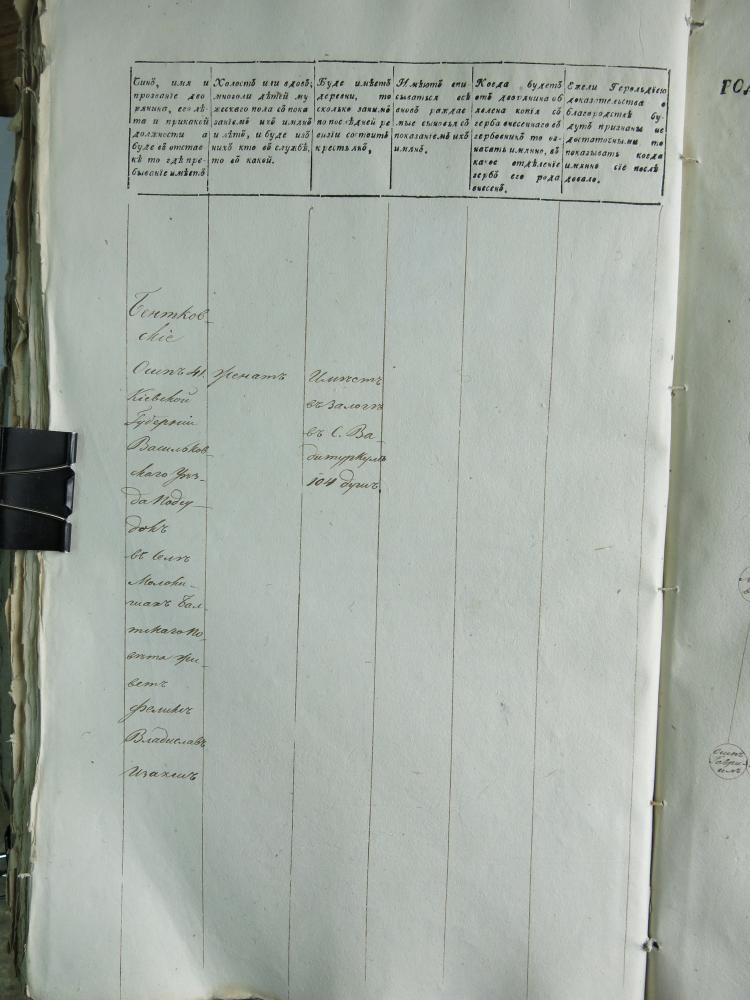 Чинъ, имя и
прозваніе дво
рянина, его лѣ-
та и при какой
должности а
буде въ отстав
кѣ то гдѣ пре-
бываніе имѣетъ
Холостъ или вдовъ;
многоли дѣтей му
жескаго пола съ пока
заніемъ ихъ имянъ
и лѣтъ, и буде изъ
нихъ кто въ службѣ,
то въ какой.
Буде имѣетъ
деревни, то
сколько занимъ
по послѣдней ре
визіи состоитъ
крестьянъ,
Имѣютъ впи
сываться всѣ
вновь раждае
мые сыновья съ
показаніемъ ихъ
имянъ.
Когда будетъ
отъ дворянина об
лена копія съ
герба внесеннаго въ
гербовникъ то оз-
начать имянно, въ
какое отдѣленіе
гербъ его рода
внесенъ.
Ежели Герольдіею
доказательства о
благородствѣ бу-
дутъ признаны не
достаточными то
показывать когда
имянно сіе послѣ
довало.
Бентков-
скіе
Осипъ 41.
Кіевской
Губерніи
Васильков-
скаго Уѣз-
да Подсу-
докъ
въ селѣ
Молоки-
шахъ Бал-
тскаго По
вѣта жи-
ветъ
Феликсъ
Владиславъ
Женатъ
Имѣетъ
въ залогѣ
въ С. Ва-
дитуркулѣ
104 душъ
РО